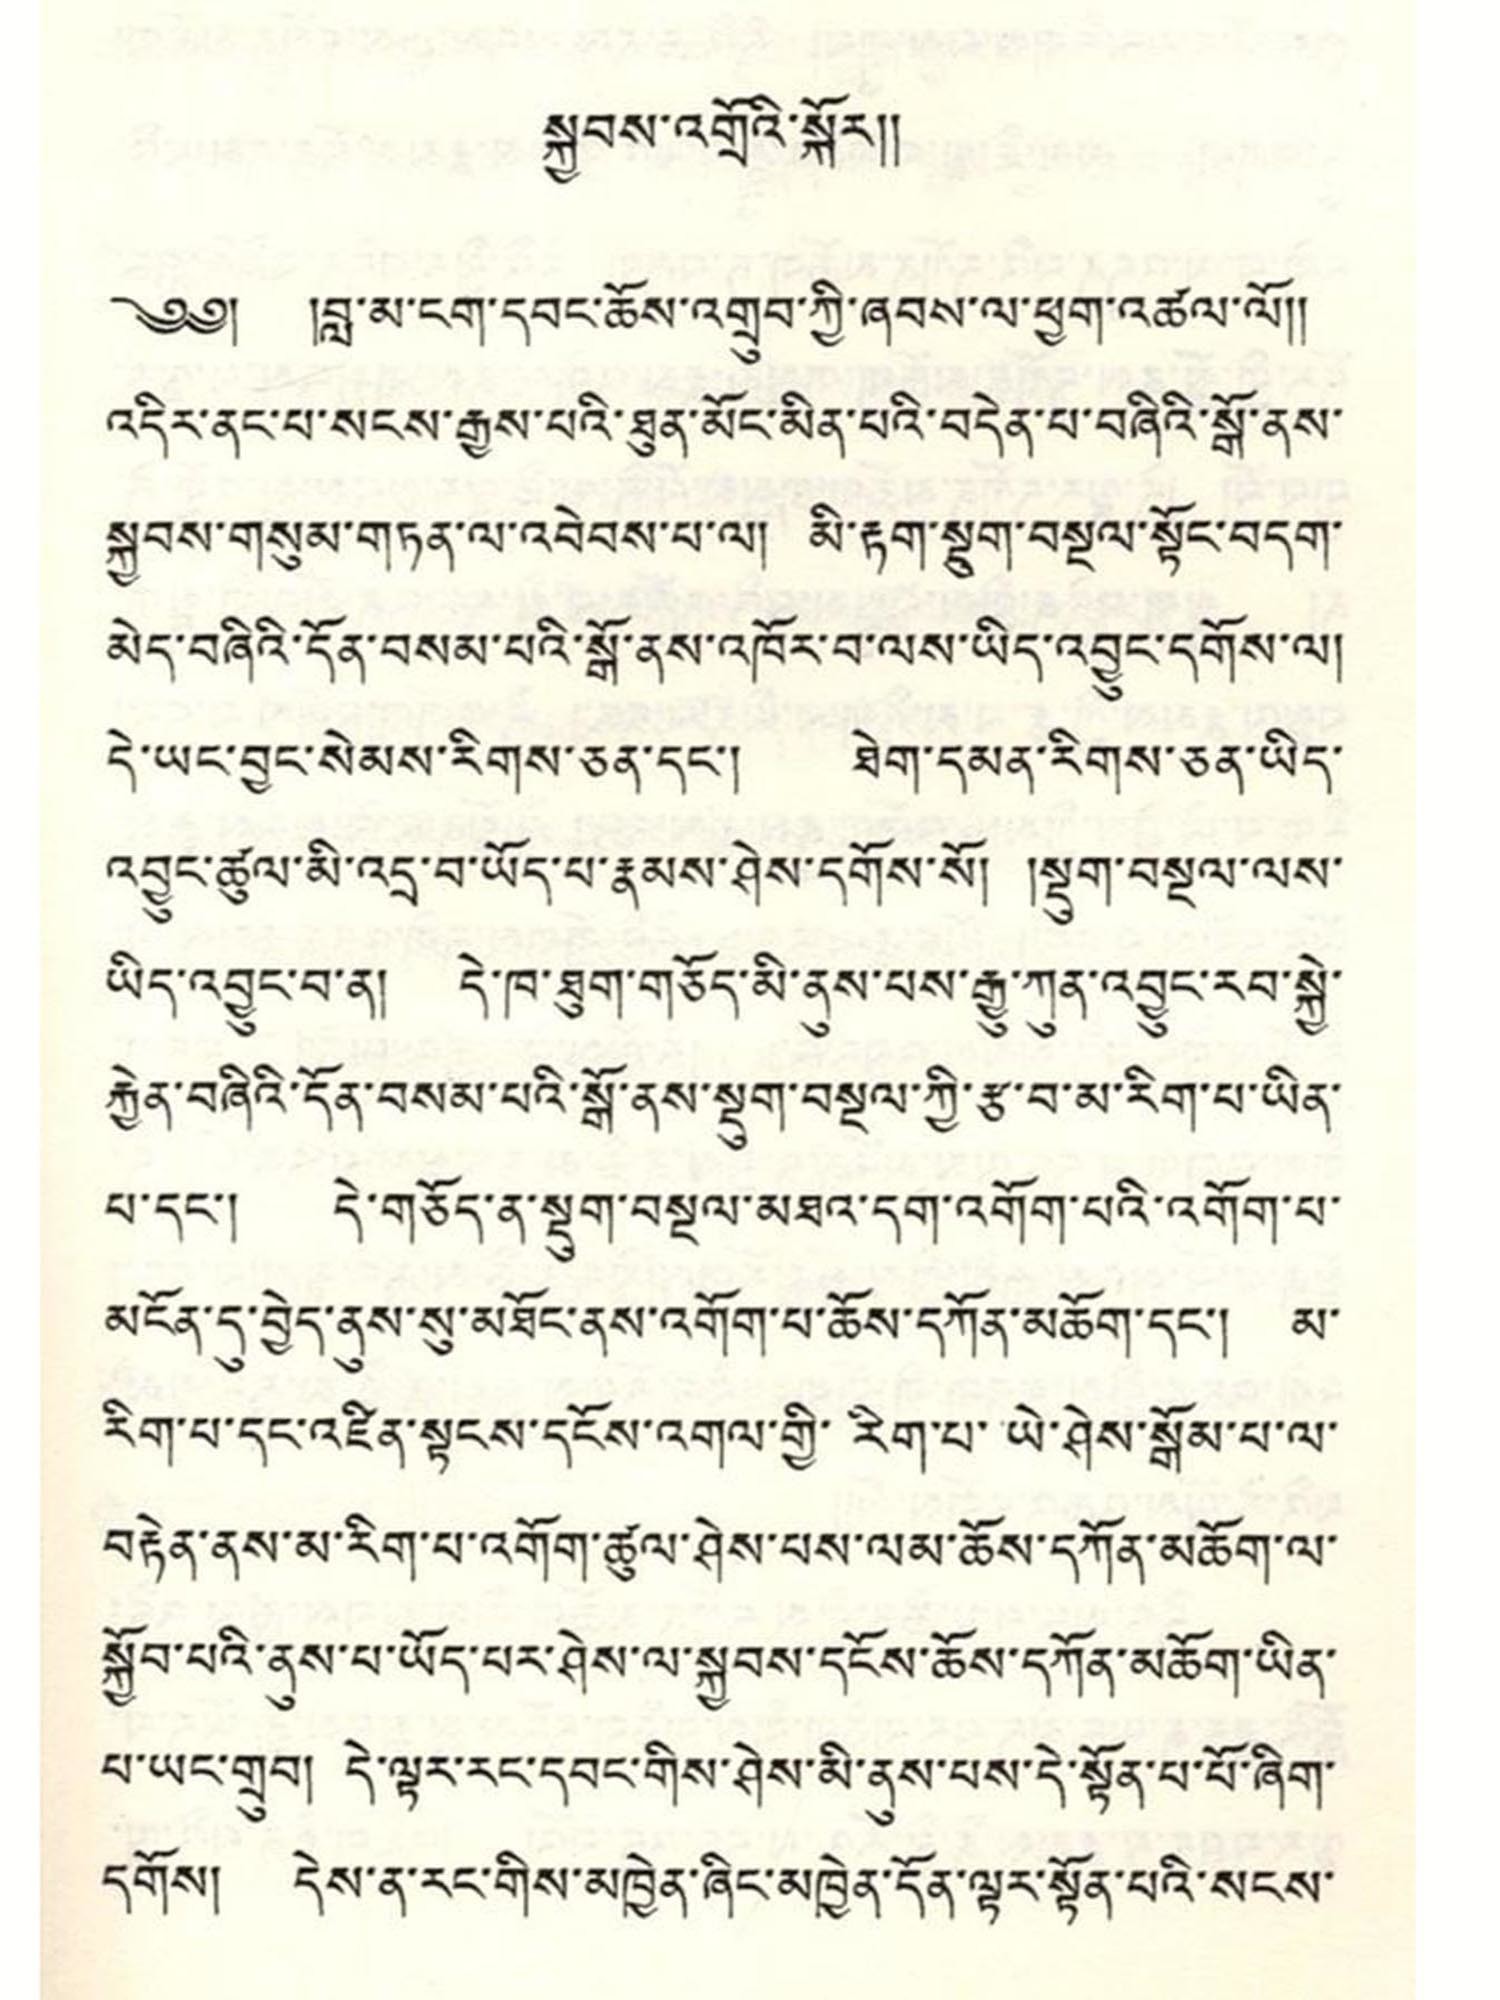 སྐྱབས་འགྲོའི་སྐོར།།
༄༅།  །བླ་མ་ངག་དབང་ཆོས་འགྲུབ་ཀྱི་ཞབས་ལ་ཕྱག་འཚལ་ལོ།།
འདིར་ནང་པ་སངས་རྒྱས་པའི་ཐུན་མོང་མིན་པའི་བདེན་པ་བཞིའི་སྒོ་ནས་
སྐྱབས་གསུམ་གཏན་ལ་འབེབས་པ་ལ།  མི་རྟག་སྡུག་བསྔལ་སྟོང་བདག་
མེད་བཞིའི་དོན་བསམ་པའི་སྒོ་ནས་འཁོར་བ་ལས་ཡིད་འབྱུང་དགོས་ལ།
དེ་ཡང་བྱང་སེམས་རིགས་ཅན་དང་།  ཐེག་དམན་རིགས་ཅན་ཡིད་
འབྱུང་ཚུལ་མི་འདྲ་བ་ཡོད་པ་རྣམས་ཤེས་དགོས་སོ།  །སྡུག་བསྔལ་ལས་
ཡིད་འབྱུང་བ་ན།  དེ་ཁ་ཐུག་གཅོད་མི་ནུས་པས་རྒྱུ་ཀུན་འབྱུང་རབ་སྐྱེ་
རྐྱེན་བཞིའི་དོན་བསམ་པའི་སྒོ་ནས་སྡུག་བསྔལ་ཀྱི་རྩ་བ་མ་རིག་པ་ཡིན་
པ་དང་།  དེ་གཅོད་ན་སྡུག་བསྔལ་མཐའ་དག་འགོག་པའི་འགོག་པ་
མངོན་དུ་བྱེད་ནུས་སུ་མཐོང་ནས་འགོག་པ་ཆོས་དཀོན་མཆོག་དང་།  མ་
རིག་པ་དང་འཛིན་སྟངས་དངོས་འགལ་གྱི་ རིག་པ་ ཡེ་ཤེས་སྒོམ་པ་ལ་
བརྟེན་ནས་མ་རིག་པ་འགོག་ཚུལ་ཤེས་པས་ལམ་ཆོས་དཀོན་མཆོག་ལ་
སྐྱོབ་པའི་ནུས་པ་ཡོད་པར་ཤེས་ལ་སྐྱབས་དངོས་ཆོས་དཀོན་མཆོག་ཡིན་
པ་ཡང་གྲུབ།  དེ་ལྟར་རང་དབང་གིས་ཤེས་མི་ནུས་པས་དེ་སྟོན་པ་པོ་ཞིག་
དགོས།  དེས་ན་རང་གིས་མཁྱེན་ཞིང་མཁྱེན་དོན་ལྟར་སྟོན་པའི་སངས་